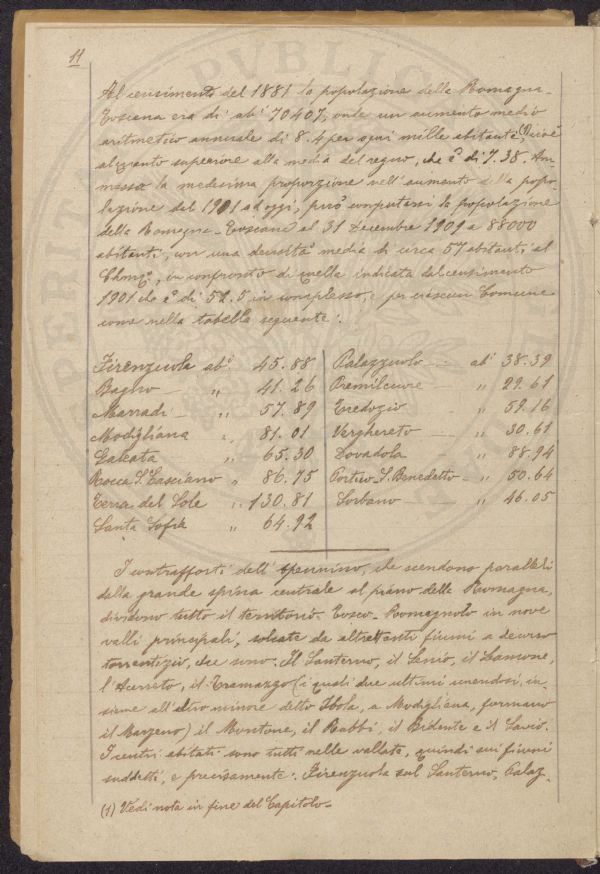 11
Al censimento del 1881 la popolazione della Romagna-
Toscana era di ab.i 70407, onde un aumento medio
aritmetico annuale di 8.4 per ogni mille abitanti,(1) cioè
alquanto superiore alla media del regno, che è di 7.38. Am-
messa la medesima proporzione nell'aumento della popo-
lazione dal 1901 ad oggi, può computarsi la popolazione
della Romagna-Toscana al 31 Decembre 1909 a 88000
abitanti, con una densità media di circa 57 abitanti al
Chmq.°, in confronto di quella indicata dal censimento
1901 che è di 52.5 in complesso, e per ciascun Comune
come nella tabella seguente:
Firenzuola ab.i 45.88
Bagno „ 41.26
Marradi „ 57.89
Modigliana „ 81.01
Galeata „ 65.30
Rocca S. Casciano „ 86.75
Terra del Sole „ 130.81
Santa Sofia „ 64.92
Palazzuolo ab.i 38.39
Premilcuore „ 29.61
Tredozio „ 59.16
Verghereto „ 30.61
Dovadola „ 88.94
Portico-S. Benedetto „ 50.64
Sorbano „ 46.05
I contrafforti dell'Apennino, che scendono paralleli
dalla grande spina centrale al piano della Romagna,
dividono tutto il territorio Tosco-Romagnolo in nove
valli principali, solcate da altrettanti fiumi a decorso
torrentizio, che sono: Il Santerno, il Senio, il Lamone,
l'Acerreto, il Tramazzo (i quali due ultimi unendosi, in-
sieme all'altro minore detto Ibola, a Modigliana, formano
il Marzeno) il Montone, il Rabbi, il Bidente e il Savio.
I centri abitati sono tutti nelle vallate, quindi sui fiumi
suddetti, e precisamente: Firenzuola sul Santerno, Palaz-
(1) Vedi nota in fine del Capitolo.